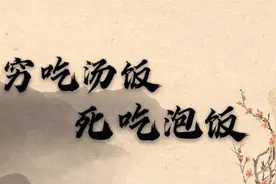 穷吃汤饭
死吃泡饭